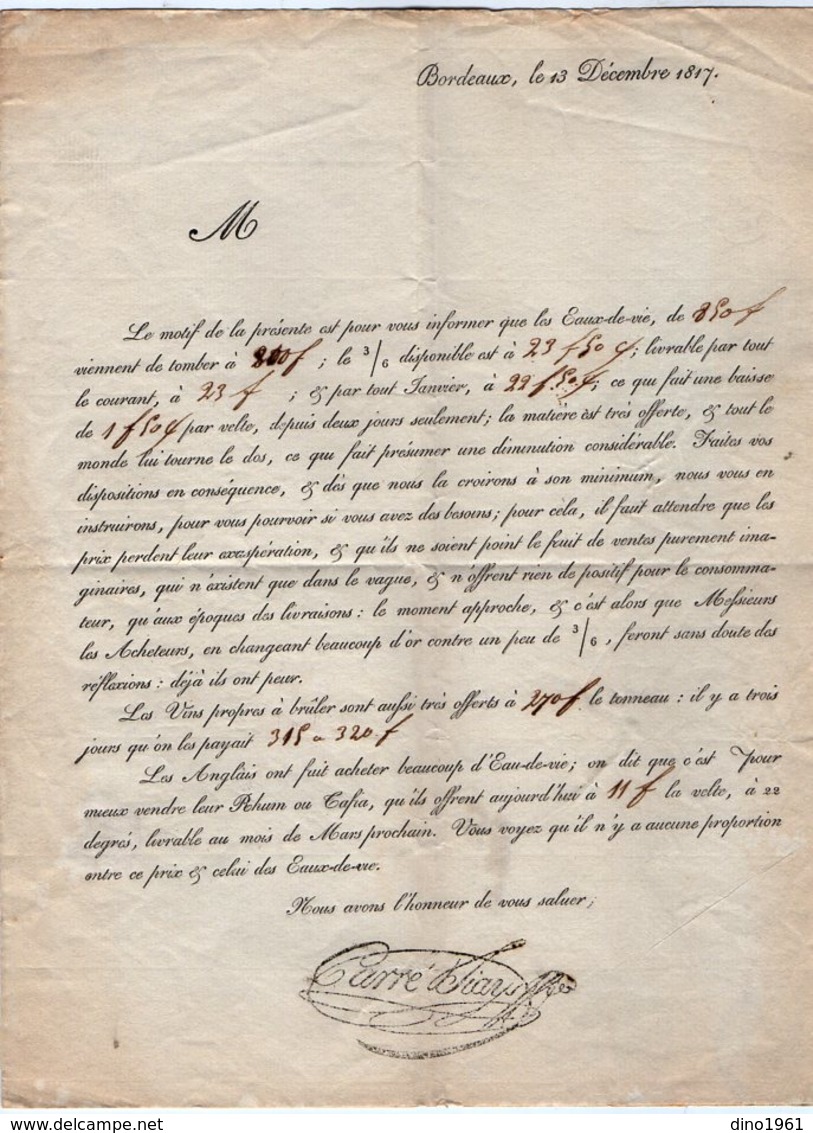 Bordeaux, le 13 Décembre 1817.
M
Le motif de la présente est pour vous informer que les Eaux-de-vie, de 850 f
viennent de tomber à 800 f; le 3/6 disponible est à 23 f 50 c; livrable par tout
le courant, à 23 f ; & par tout Janvier, à 22 f 50 c; ce qui fait une baisse
de 1 f 50 c par velte, depuis deux jours seulement; la matière est très offerte, & tout le
monde lui tourne le dos, ce qui fait présumer une diminution considérable. Faites vos
dispositions en conséquence, & dès que nous la croirons à son minimum, nous vous en
instruirons, pour vous pourvoir si vous avez des besoins; pour cèla, il faut attendre que les
prix perdent leur exaspération, & qu'ils ne soient point le fruit de ventes purement ima-
ginaires, qui n'existent que dans le vague, & n'offrent rien de positif pour le consomma-
teur, qu'aux époques des livraisons: le moment approche, & c'est alors que Messieurs
les Acheteurs, en changeant beaucoup d'or contre un peu de 3/6, feront sans doute des
réflexions: déjà ils ont peur.
Les Vins propres à brûler sont aussi très offerts à 270 f. le tonneau: il y a trois
jours qu'on les payait 315 a 320 f
Les Anglais ont fait acheter beaucoup d'Eau-de-vie; on dit que c'est pour
mieux vendre leur Rhum ou Tafia, qu'ils offrent aujourd'hui à 11 f la velte, à 22
degrés, livrable au mois de Mars prochain. Vous voyez qu'il n'y a aucune proportion
entre ce prix & celui des Eaux-de-vie.
Nous avons l'honneur de vous saluer;
Carré
dino1961